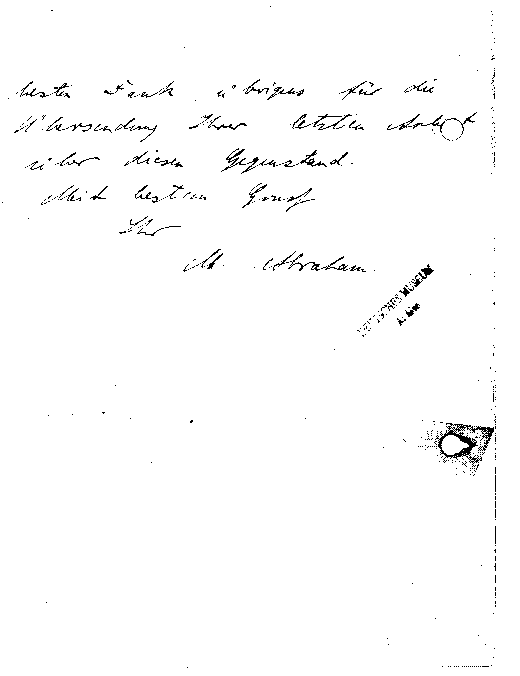 besten Dank übrigens für die
Übersendung Ihrer letzten Arbeit
über diesen Gegenstand.
Mit bestem Gruß
Ihr
M. Abraham.
DEUTSCHES MUSEUM
Archiv